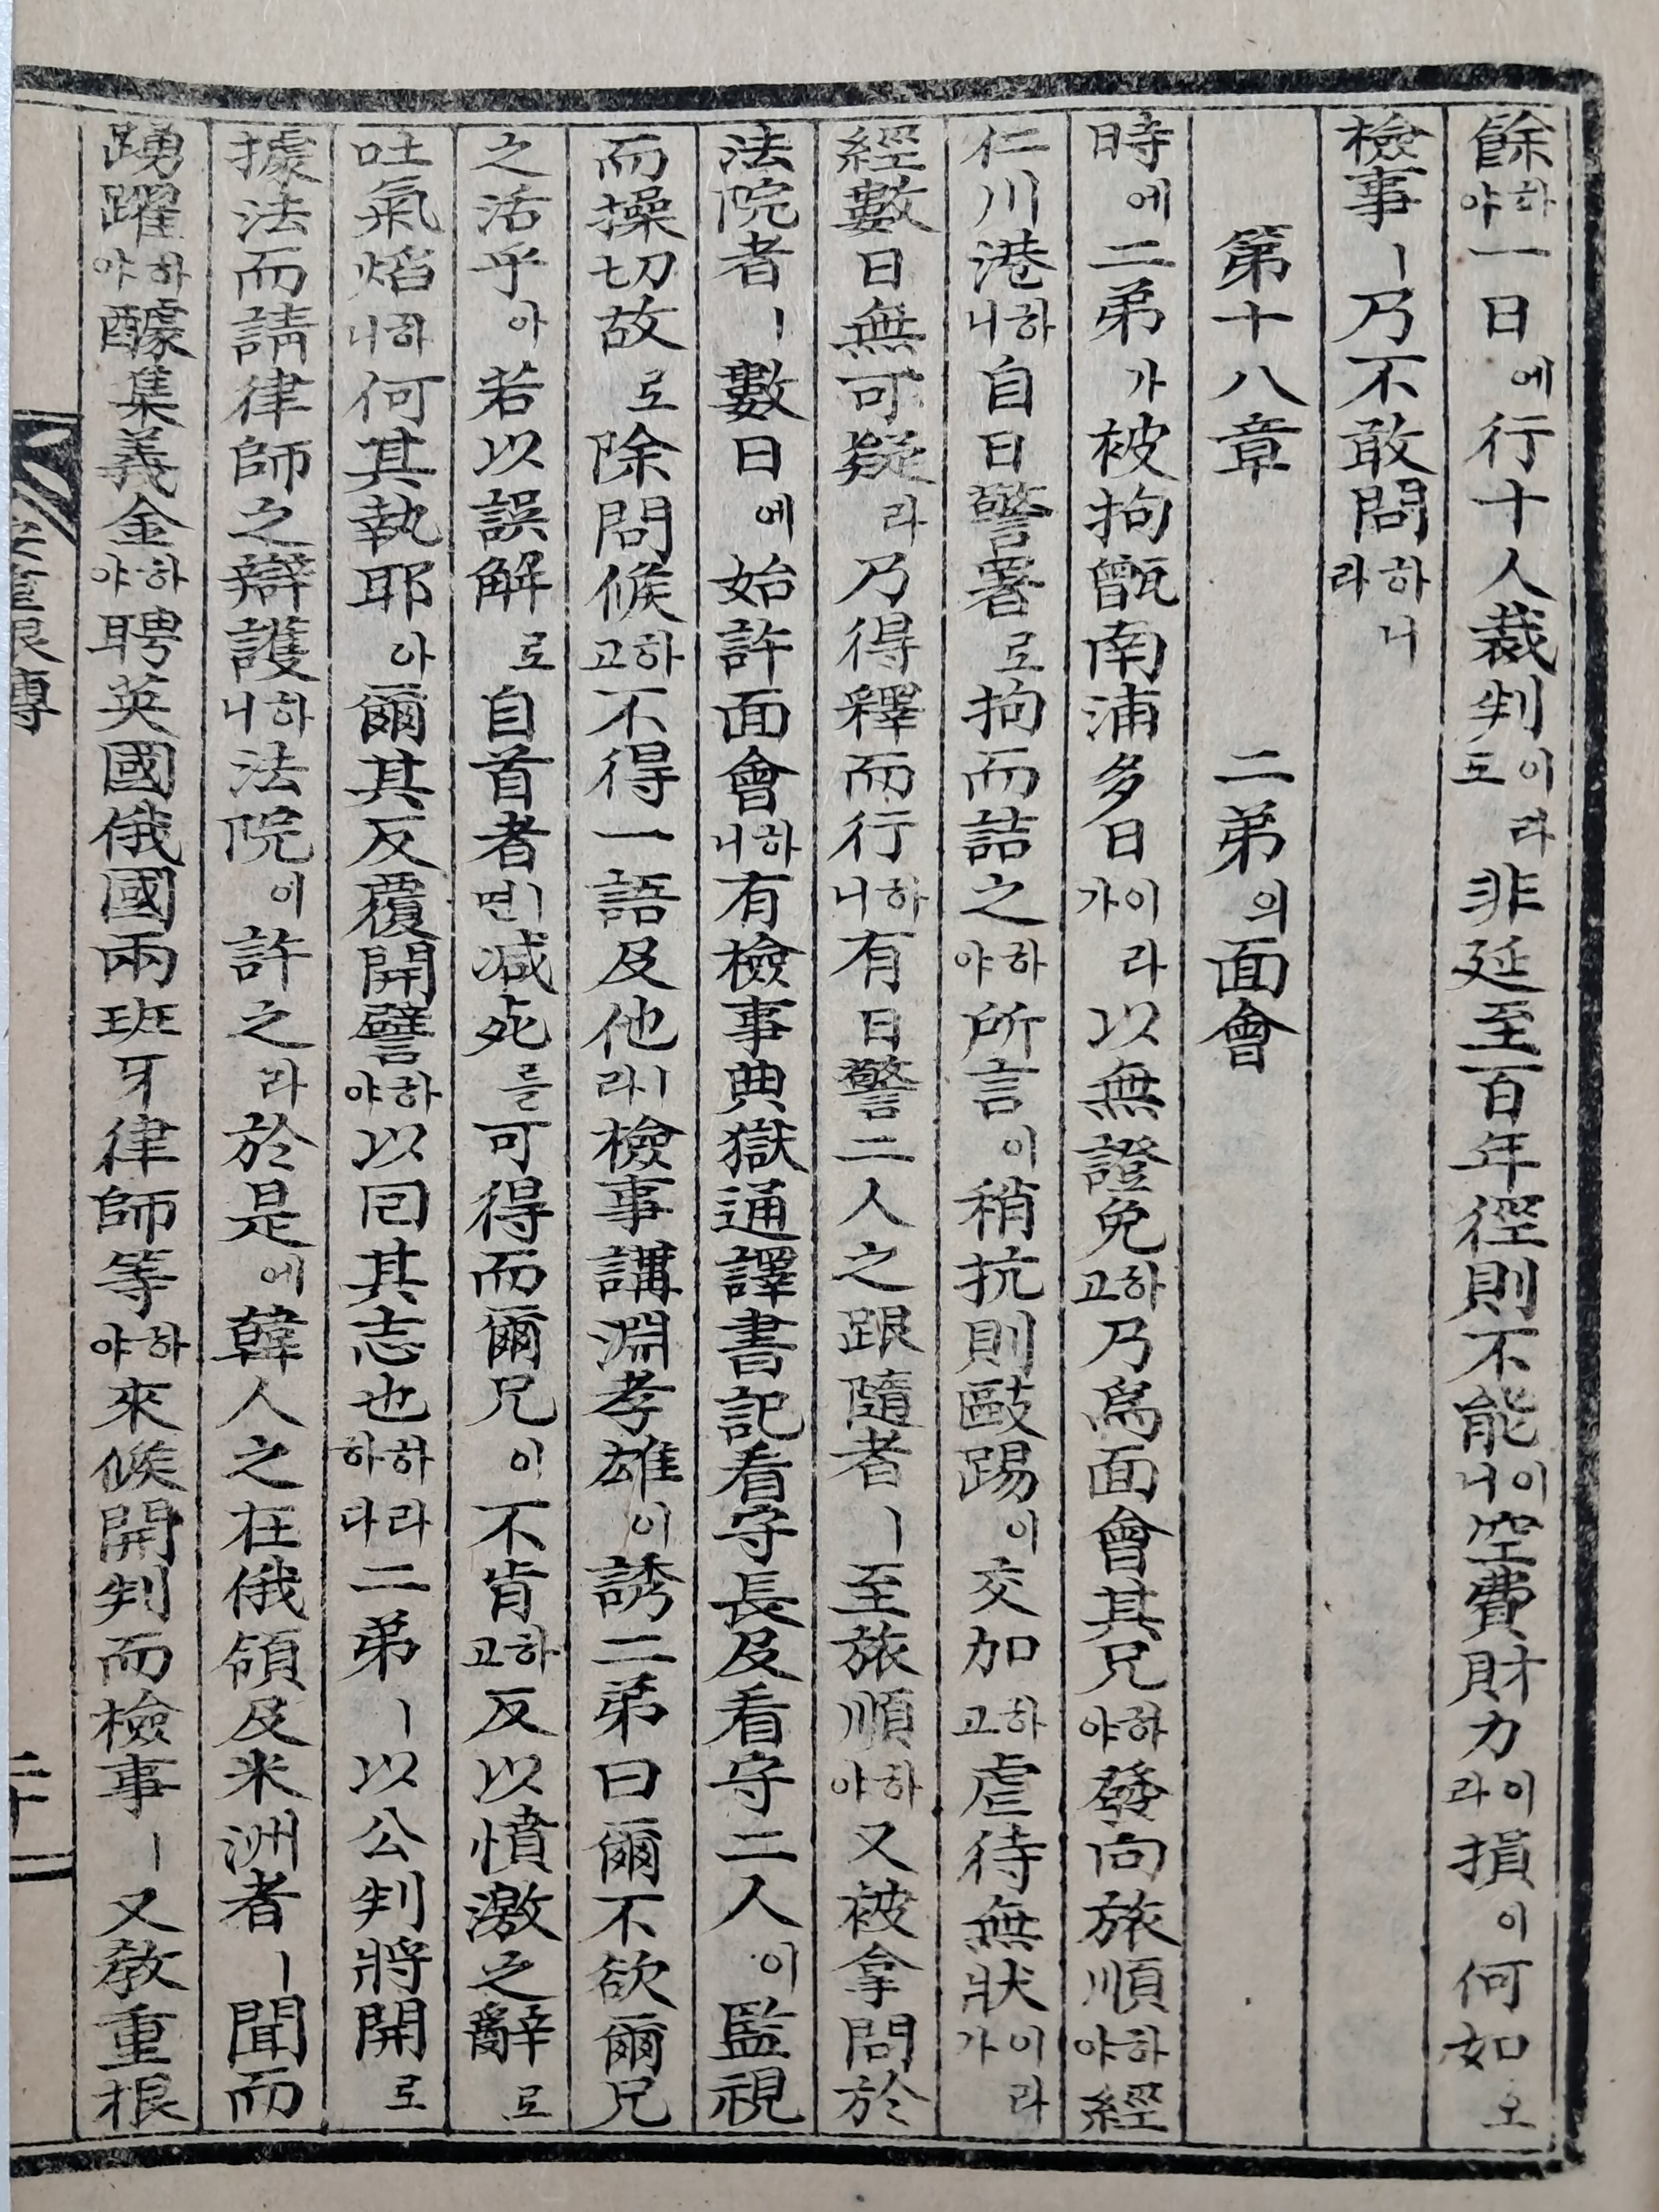 餘하야一日에行十人裁判이도라非延至一百年徑則不能이니空費財力이라損이何如오
檢事ㅣ乃不敢問하니라
第十八章 二弟의面會
時에二弟가被拘甑南浦多日이가라以無證免하고乃爲面會其兄하야發向旅順하야經
仁川港하니自日警署로拘而詰之하야所言이稍抗則毆踢이交加하고虐待無狀이가라
經數日無可疑라乃得釋而行하니有日警二人之跟隨者ㅣ至旅順하야又被拿問於
法院者ㅣ數日에始許面會하니有檢事典獄通譯書記看守長及看守二人이監視
而操切故로除問候하고不得一語及他ㅣ라檢事講淵孝雄이誘二弟曰爾不欲爾兄
之活乎아若以誤解로自首者ㅣ면減死를可得而爾兄이不肯하고反以憤激之辭로
吐氣焰하니何其執耶아爾其反覆開譬하야以回其志也하라하다二弟ㅣ以公判將開로
據法而請律師之辯護하니法院이許之라於是에韓人之在俄領及米洲者ㅣ聞而
踴躍하야醵集義金하야聘英國俄國兩班牙律師等하야來候開判而檢事ㅣ又敎重根